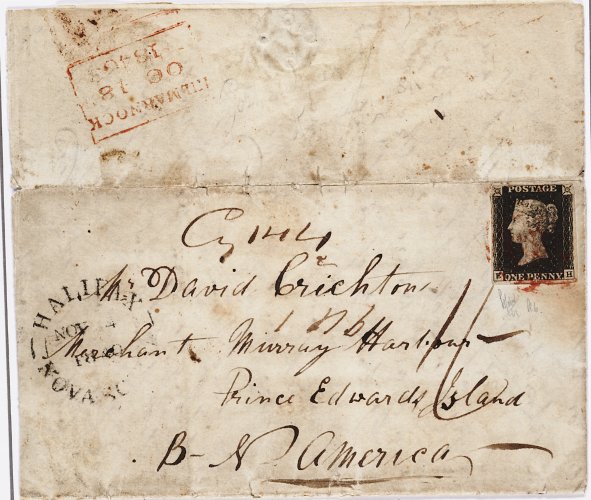 KILMARNOCK
OC 18
1840
POSTAGE
ONE PENNY
H
Cy 1/4 1/4
Mr David Crichton
HALIFAX
NOV
1840
NOVA SC
Merchant Murray Harbour
Prince Edwards Island
B- N America